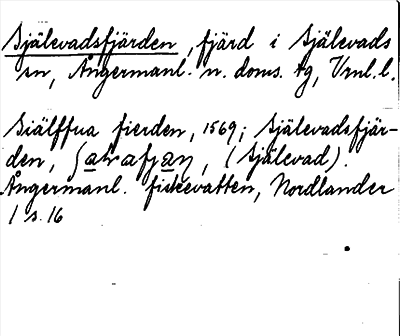 Själevadsfjärden, fjärd i Själevads
sn, Ångermanl. n. doms. tg, Vnl. l.
Siälffua fierden, 1569; Själevadsfjär-
den, (Själevad).
Ångermanl. fiskevatten, Nordlander
1 s. 16